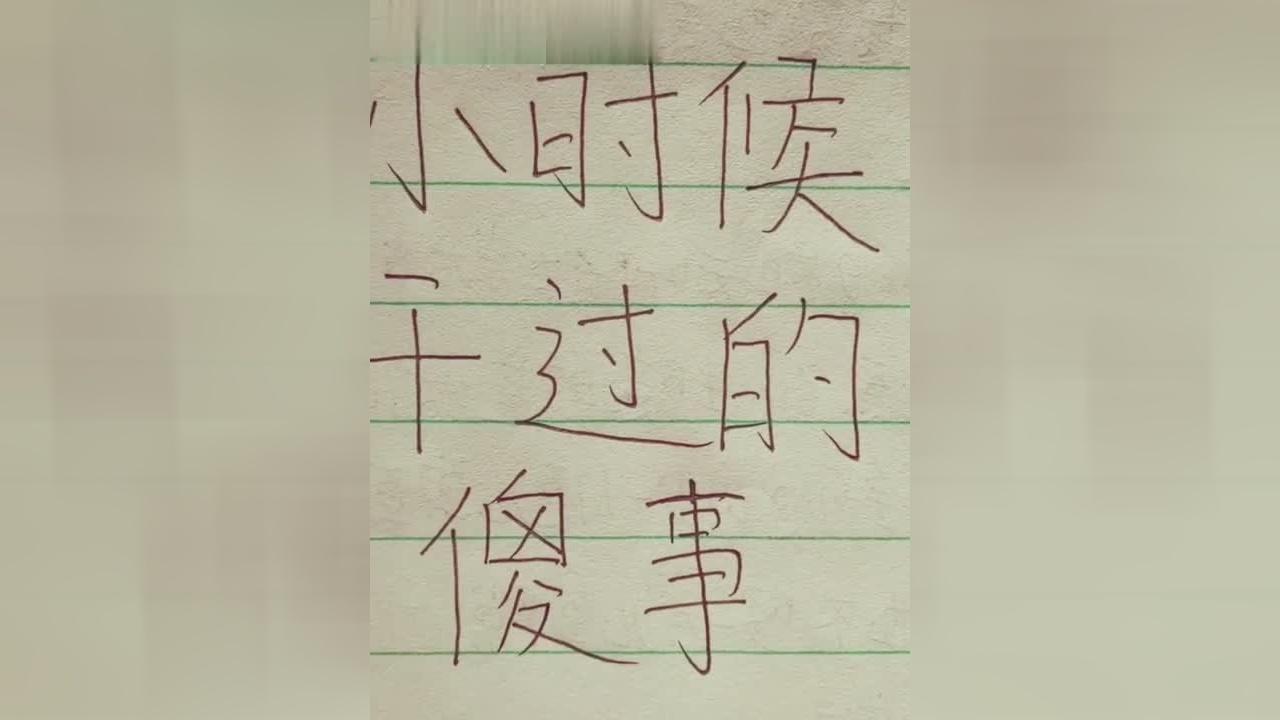 小时候
干过的
傻事